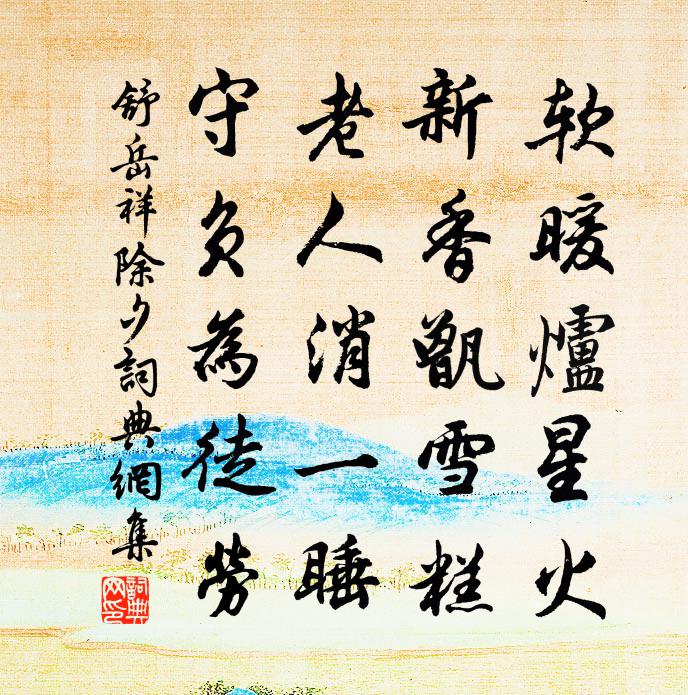 软暖爐星火
新香甑雪糕
老人消一睡
守负為徒勞
舒岳祥除夕詞典網集
詞典